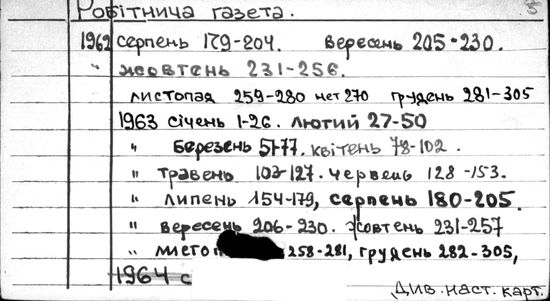 Робітнича газета. 5
1962 серпень 179-204. вересень 205-230.
" жовтень 231-256.
листопад 259-280 нет 270 грудень 281-305
1963 січень 1-26. лютий 27-50
" березень 51-77. квітень 78-102.
" травень 103-127. червень 128-153.
" липень 154-179, серпень 180-205.
" вересень 206-230. жовтень 231-257
" листо 258-281, грудень 282-305,
1964 с
Див. наст. карт.